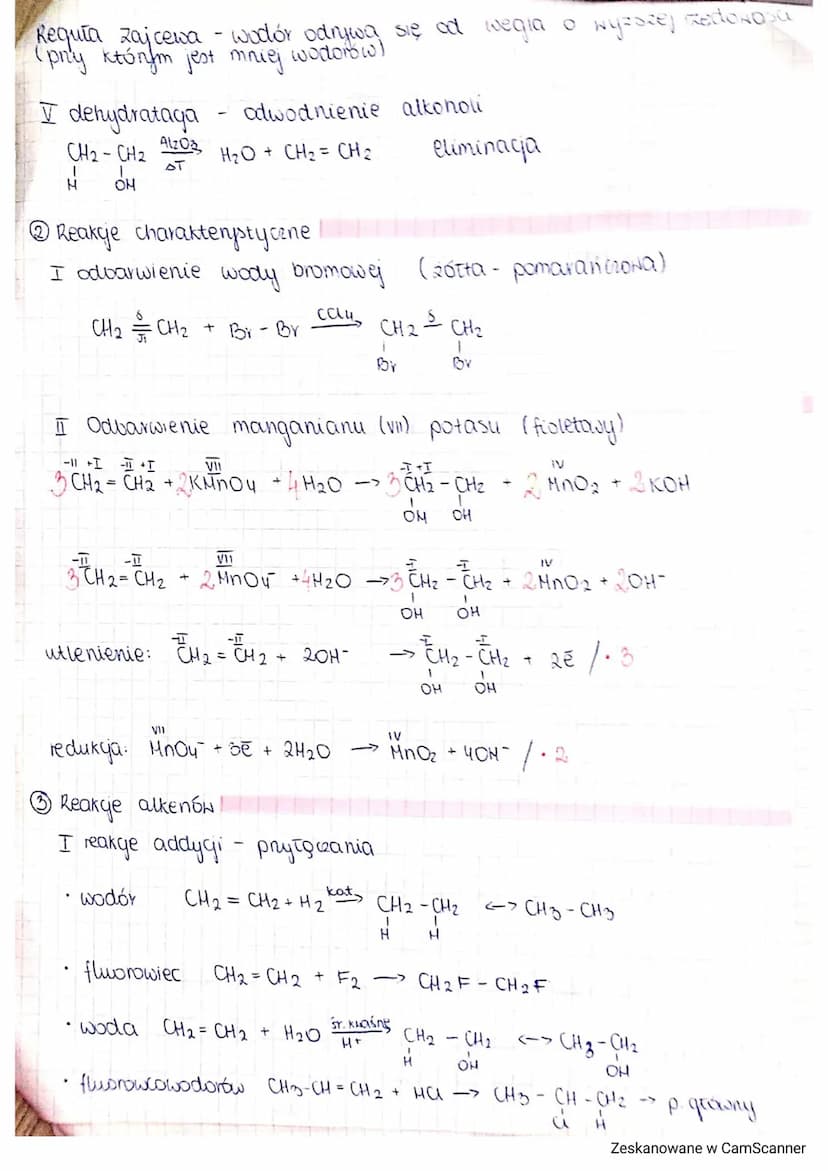 Reguła Zajcewa - wodór odrywa się od węgla o wyższej rzędowości
(przy którym jest mniej wodorów)
V dehydratacja - odwodnienie alkoholi
CH2 - CH2 Al2O3 ΔT H2O + CH2 = CH2 eliminacja
H OH
② Reakcje charakterystyczne
I odbarwienie wody bromowej (żółta - pomarańczowa)
CH2 = CH2 + Br - Br CCl4 → CH2 - CH2
Br Br
II Odbarwienie manganianu (VII) potasu (fioletowy)
-II +I -II +I VII -I +I IV
3CH2 = CH2 + 2KMnO4 + 4H2O → 3CH2 - CH2 + 2MnO2 + 2KOH
OH OH
-II -II VII -I -I IV
3CH2 = CH2 + 2MnO4⁻ + 4H2O → 3CH2 - CH2 + 2MnO2 + 2OH⁻
OH OH
-II -II -I -I
utlenienie: CH2 = CH2 + 2OH⁻ → CH2 - CH2 + 2ē / · 3
OH OH
VII IV
redukcja: MnO4⁻ + 3ē + 2H2O → MnO2 + 4OH⁻ / · 2
③ Reakcje alkenów
I reakcje addycji - przyłączania
· wodór CH2 = CH2 + H2 kat. → CH2 - CH2 <-> CH3 - CH3
H H
· fluorowiec CH2 = CH2 + F2 → CH2F - CH2F
· woda CH2 = CH2 + H2O śr. kwaśny H+ CH2 - CH2 <-> CH3 - CH2
H OH OH
· fluorowcowodorów CH3 - CH = CH2 + HCl → CH3 - CH - CH2 → p. główny
Cl H
Zeskanowane w CamScanner